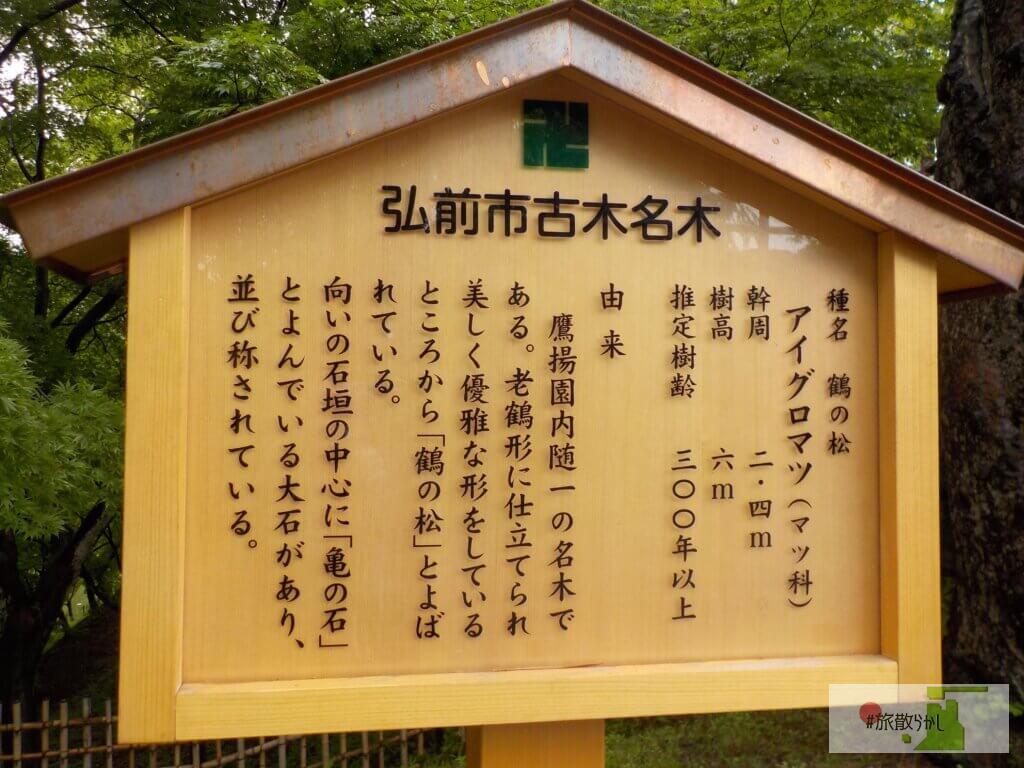 弘前市古木名木
種名　鶴の松
アイグロマツ(マツ科)
幹周　二・四m
樹高　六m
推定樹齢　三〇〇年以上
由来
鷹揚園内随一の名木で
ある。老鶴形に仕立てられ
美しく優雅な形をしている
ところから「鶴の松」とよば
れている。
向いの石垣の中心に「亀の石」
とよんでいる大石があり、
並び称されている。
#旅散らかし